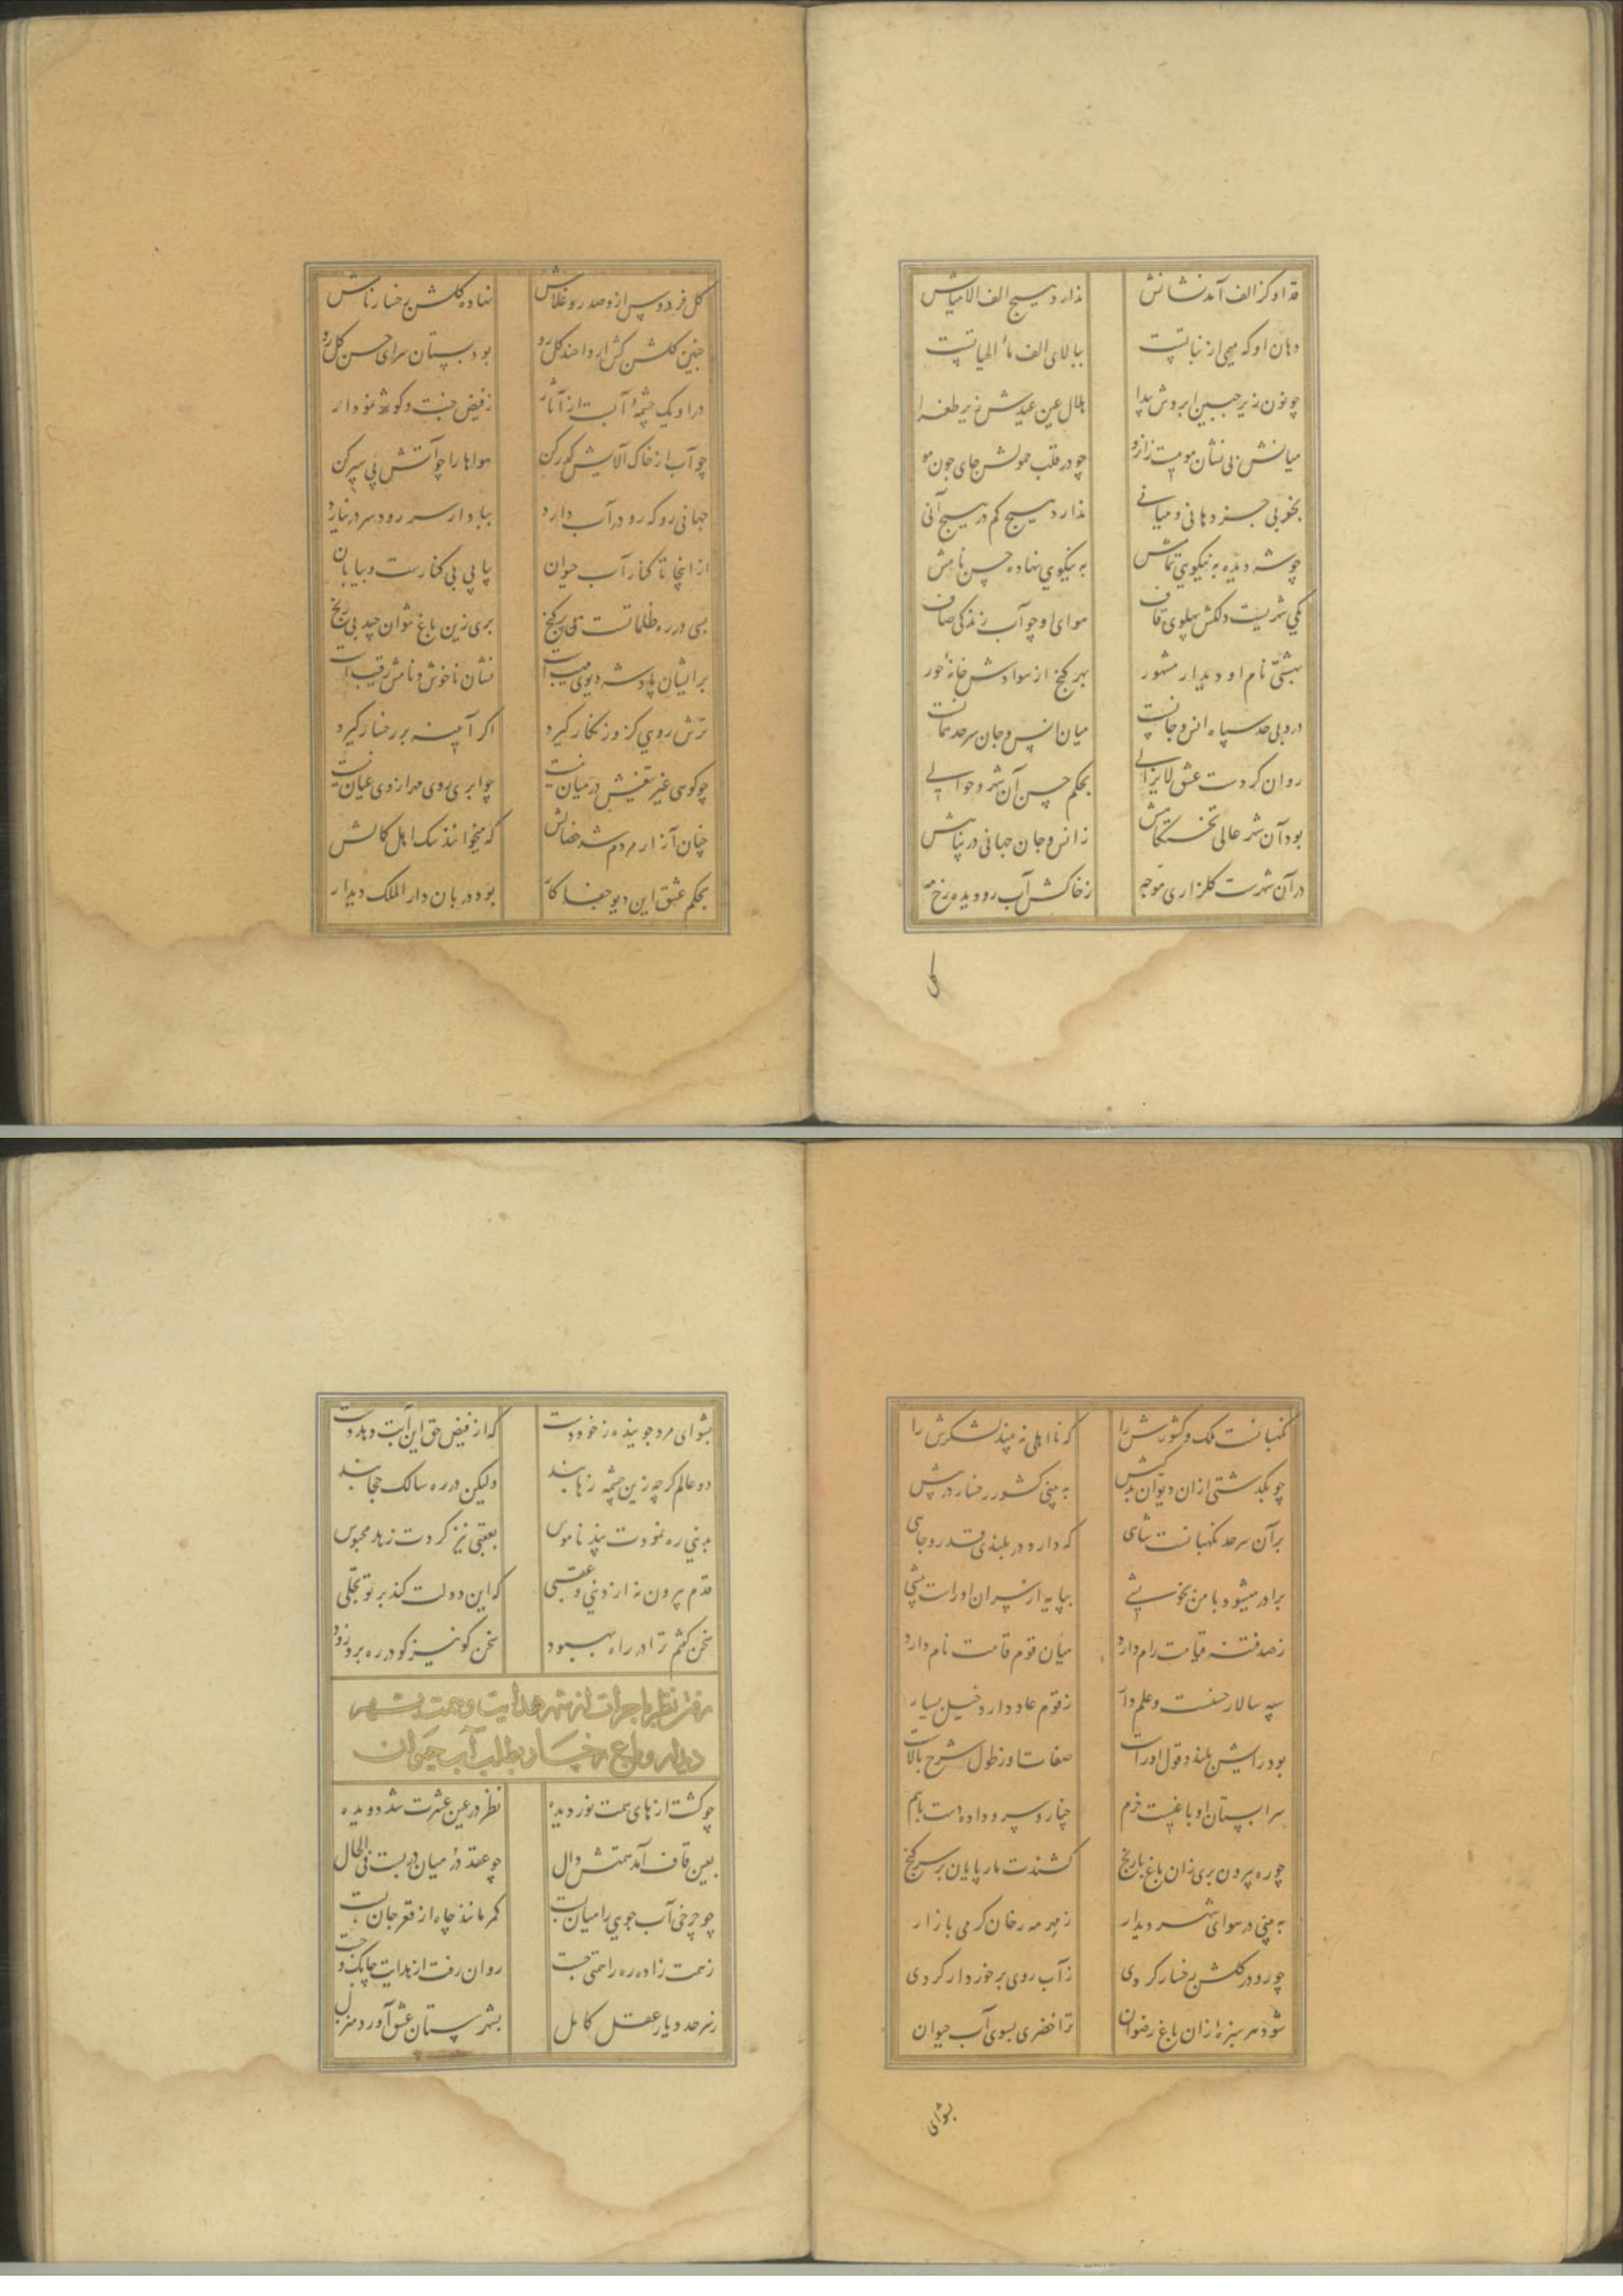 قد او کز الف آمد نشانش ندارد هیچ الف الا میانش
دهان او که میمی از نباتست ببالای الف ماء الحیاتست
چو نون زیر جبین ابروش پیدا هلال عین عیدش زیر طغرا
میانش بی نشان مویست زان رو چو در قلب حمولش جای چون مو
بخوبی جز دهانی و میانی ندارد هیچ کم در هیچ آنی
چو شه دیده به نیکویی تمامش به نیکویی نهاده حسن نامش
یکی شهریست دلکش پهلوی قاف هوای او چو آب زندگی صاف
بهشتی نام او دیدار مشهور بهر کنج از سوادش خانهٔ حور
درو بی حد سپاه انس و جانست میان انس و جان سرحد همانست
روان کردست عشق لایزالی بحکم حسن آن شهر و حوالی
بود آن شهر عالی تختگاهش ز انس و جان جهانی در پناهش
در آن شهرست گلزاری موجه ز خاکش آب رو دیده رخ مه
گل
گل فردوس ازو صد رو غلامش نهاده گلشن رخسار نامش
چنین گلشن کش ار داحند گل رو بود بستان سرای حسن گل رو
در او یک چشمهٔ آبست از آثار ز فیض جنت و کوثر نمودار
چو آب از خاک آلایش گم رکن هواها را چو آتش پی سپر کن
جهانی رو که رو در آب دارد بباد ار سر رود سر در نیارد
از اینجا تا کنار آب حیوان پیاپی بی کنارست و بیابان
بسی در ره ظلماتست پی گنج بری زین باغ نتوان چید بی رنج
بر ایشان پادشه دیوی مهیب است نشان ناخوش و نامش رقیب است
ترش رویی کزو زنگار گیرد اگر آیینه بر رخسار گیرد
چو کوهی غیر تیغش در میان نیست چو ابری روی مهر از وی عیان نیست
چنان آزار مردم شد خصالش که میخوانند سگ اهل کمالش
بحکم عشق این دیو جفا کار بود دربان دار الملک دیدار
نگهبانست ملک و کشورش را که نااهلی نه بیند لشکرش را
چو بگذشتی ازان دیوان بدکیش به بینی کشور رخسار در پیش
بر آن سرحد نگهبانست شاهی که دارد در بلندی قدر و جاهی
برادر میشود با من بخویشی بپایه از سران او راست پیشی
ز صد فتنه قیامت رام دارد میان قوم قامت نام دارد
سپه سالار حسنست و علم دار ز قوم عاد دارد خیل بسیار
بود رایش بلند و قول او راست صفات او ز طول شرح بالاست
سرابستان او باغیست خرم چنار و سرو داده دست باهم
چو ره بیرون بری زان باغ با رنج کشندت مار پایان بر سر گنج
به بینی در هوای شهر دیدار ز مهر مه رخان گرمی بازار
چو رو در گلشن رخسار کردی ز آب روی برخوردار کردی
شود هر سبزهٔ زان باغ رضوان ترا خضری بسوی آب حیوان
بشو ای
بشو ای مرد جوینده ز خود دست که از فیض حق این آبت دهد دست
دو عالم گرچه زین چشمه زهابند ولیکن در ره سالک حجابند
بدنیی ره نمودت پند ناموس بعقبی نیز کردت زهد محبوس
قدم بیرون نه از دنیی و عقبی که این دولت کند بر تو تجلی
سخن گفتم ترا در راه بهبود سخن گو نیز کو در ره برو زود
رفتن نظر با جرات از شهر هدایت و همت بشهر
دیدار و باغ رخسار بطلب آب حیوان
چو گشت از های همت نور دیده نظر در عین عشرت شد دویده
بعین قاف آمد همتش دال چو عقد در میان در بست فی الحال
چو چرخی آب جویی را میان بست کمر مانند چاه از قعر جان بست
ز همت زاد ره را همتی جست روان رفت از هدایت چابک و چست
ز سرحد دیار عقل کامل بشهرستان عشق آورد منزل